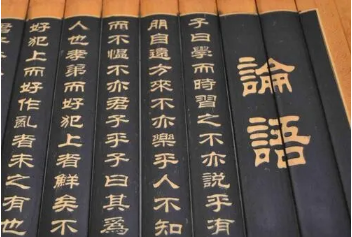 論語
子曰學而時習之不亦說乎有
朋自遠方來不亦樂乎人不知
而不慍不亦君子乎子曰其爲
人也孝弟而好犯上者鮮矣不
好犯上而好作亂者未之有也